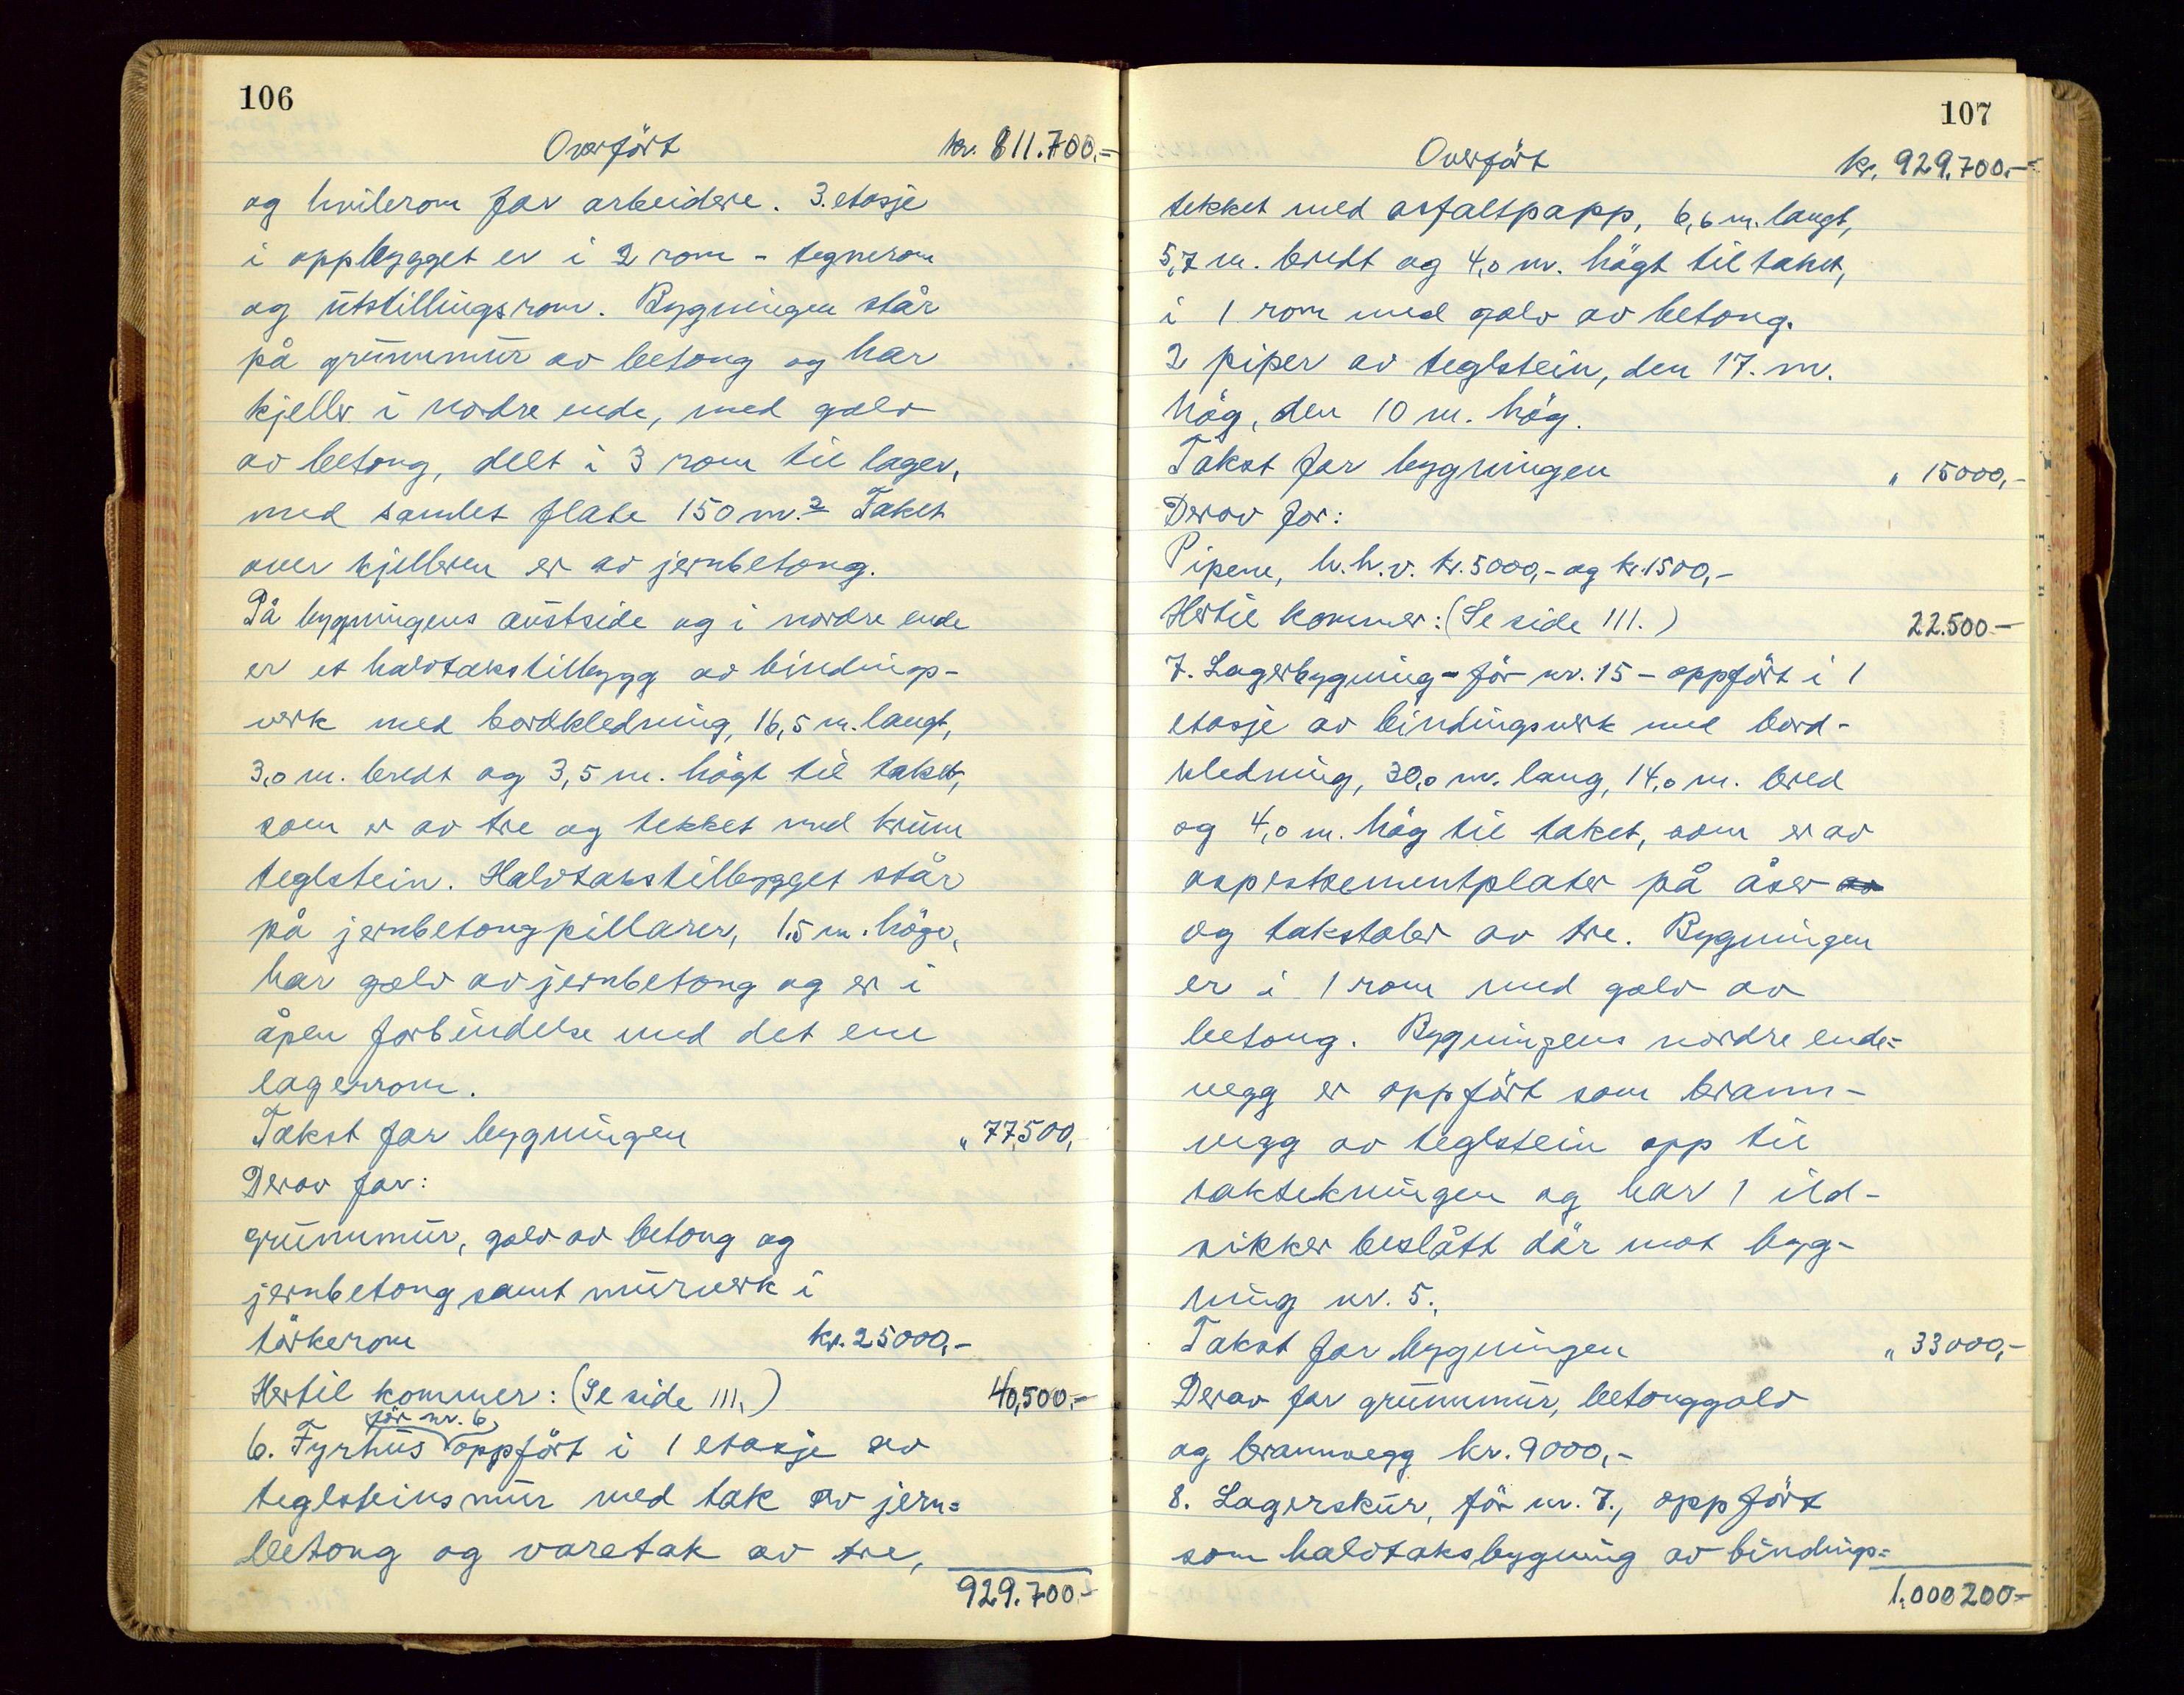 106
Overfört kr. 811.700,-
og hvilerom for arbeidere. 3. etasje
i oppbygget er i 2 rom - tegnerom
og utstillingsrom. Bygningen står
på grunnmur av betong og har
kjeller i nordre ende, med golv
av betong, delt i 3 rom til lager,
med samlet flate 150 m.² Taket
over kjelleren er av jernbetong.
På bygningens austside og i nordre ende
er et halvtakstilbygg av bindings-
verk med bordkledning, 16,5 m. langt,
3,0 m. bredt og 3,5 m. högt til taket,
som er av tre og tekket med krum
teglstein. Halvtakstilbygget står
på jernbetongpillarer, 1,5 m. höge,
har golv av jernbetong og er i
åpen forbindelse med det ene
lagerrom.
Takst for bygningen " 77,500,
Derav for:
grunnmur, golv av betong og
jernbetong samt murverk i
törkerom kr. 25000,-
Hertil kommer: (Se side 111.) 40,500.-
för nr. 6,
6. Fyrhus oppfört i 1 etasje av
teglsteinsmur med tak av jern=
betong og varetak av tre,
929.700.-
107
Overfört kr. 929.700.-
tekket med asfaltpapp, 6,6 m. langt,
5,7 m. bredt og 4,0 m. högt til taket,
i 1 rom med golv av betong.
2 piper av teglstein, den 17. m.
hög, den 10 m. hög.
Takst for bygningen " 15000,-
Derav for:
Pipene, h.h.v. kr. 5000,- og kr. 1500,-
Hertil kommer: (Se side 111.) 22.500-
7. Lagerbygning - för nr. 15 - oppfört i 1
etasje av bindingsverk med bord-
kledning, 30,0 m. lang, 14,0 m. bred
og 4,0 m. hög til taket, som er av
aspestsementplater på åser av
og takstoler av tre. Bygningen
er i 1 rom med golv av
betong. Bygningens nordre ende=
vegg er oppfört som brann-
vegg av teglstein opp til
taktekningen og har 1 ild-
sikker beslått dör mot byg-
ning nr. 5.
Takst for bygningen " 33000,-
Derav for grunnmur, betonggolv
og brannvegg kr. 9000,-
8. Lagerskur, för nr. 7., oppfört
som halvtaksbygning av bindings=
1.000200-